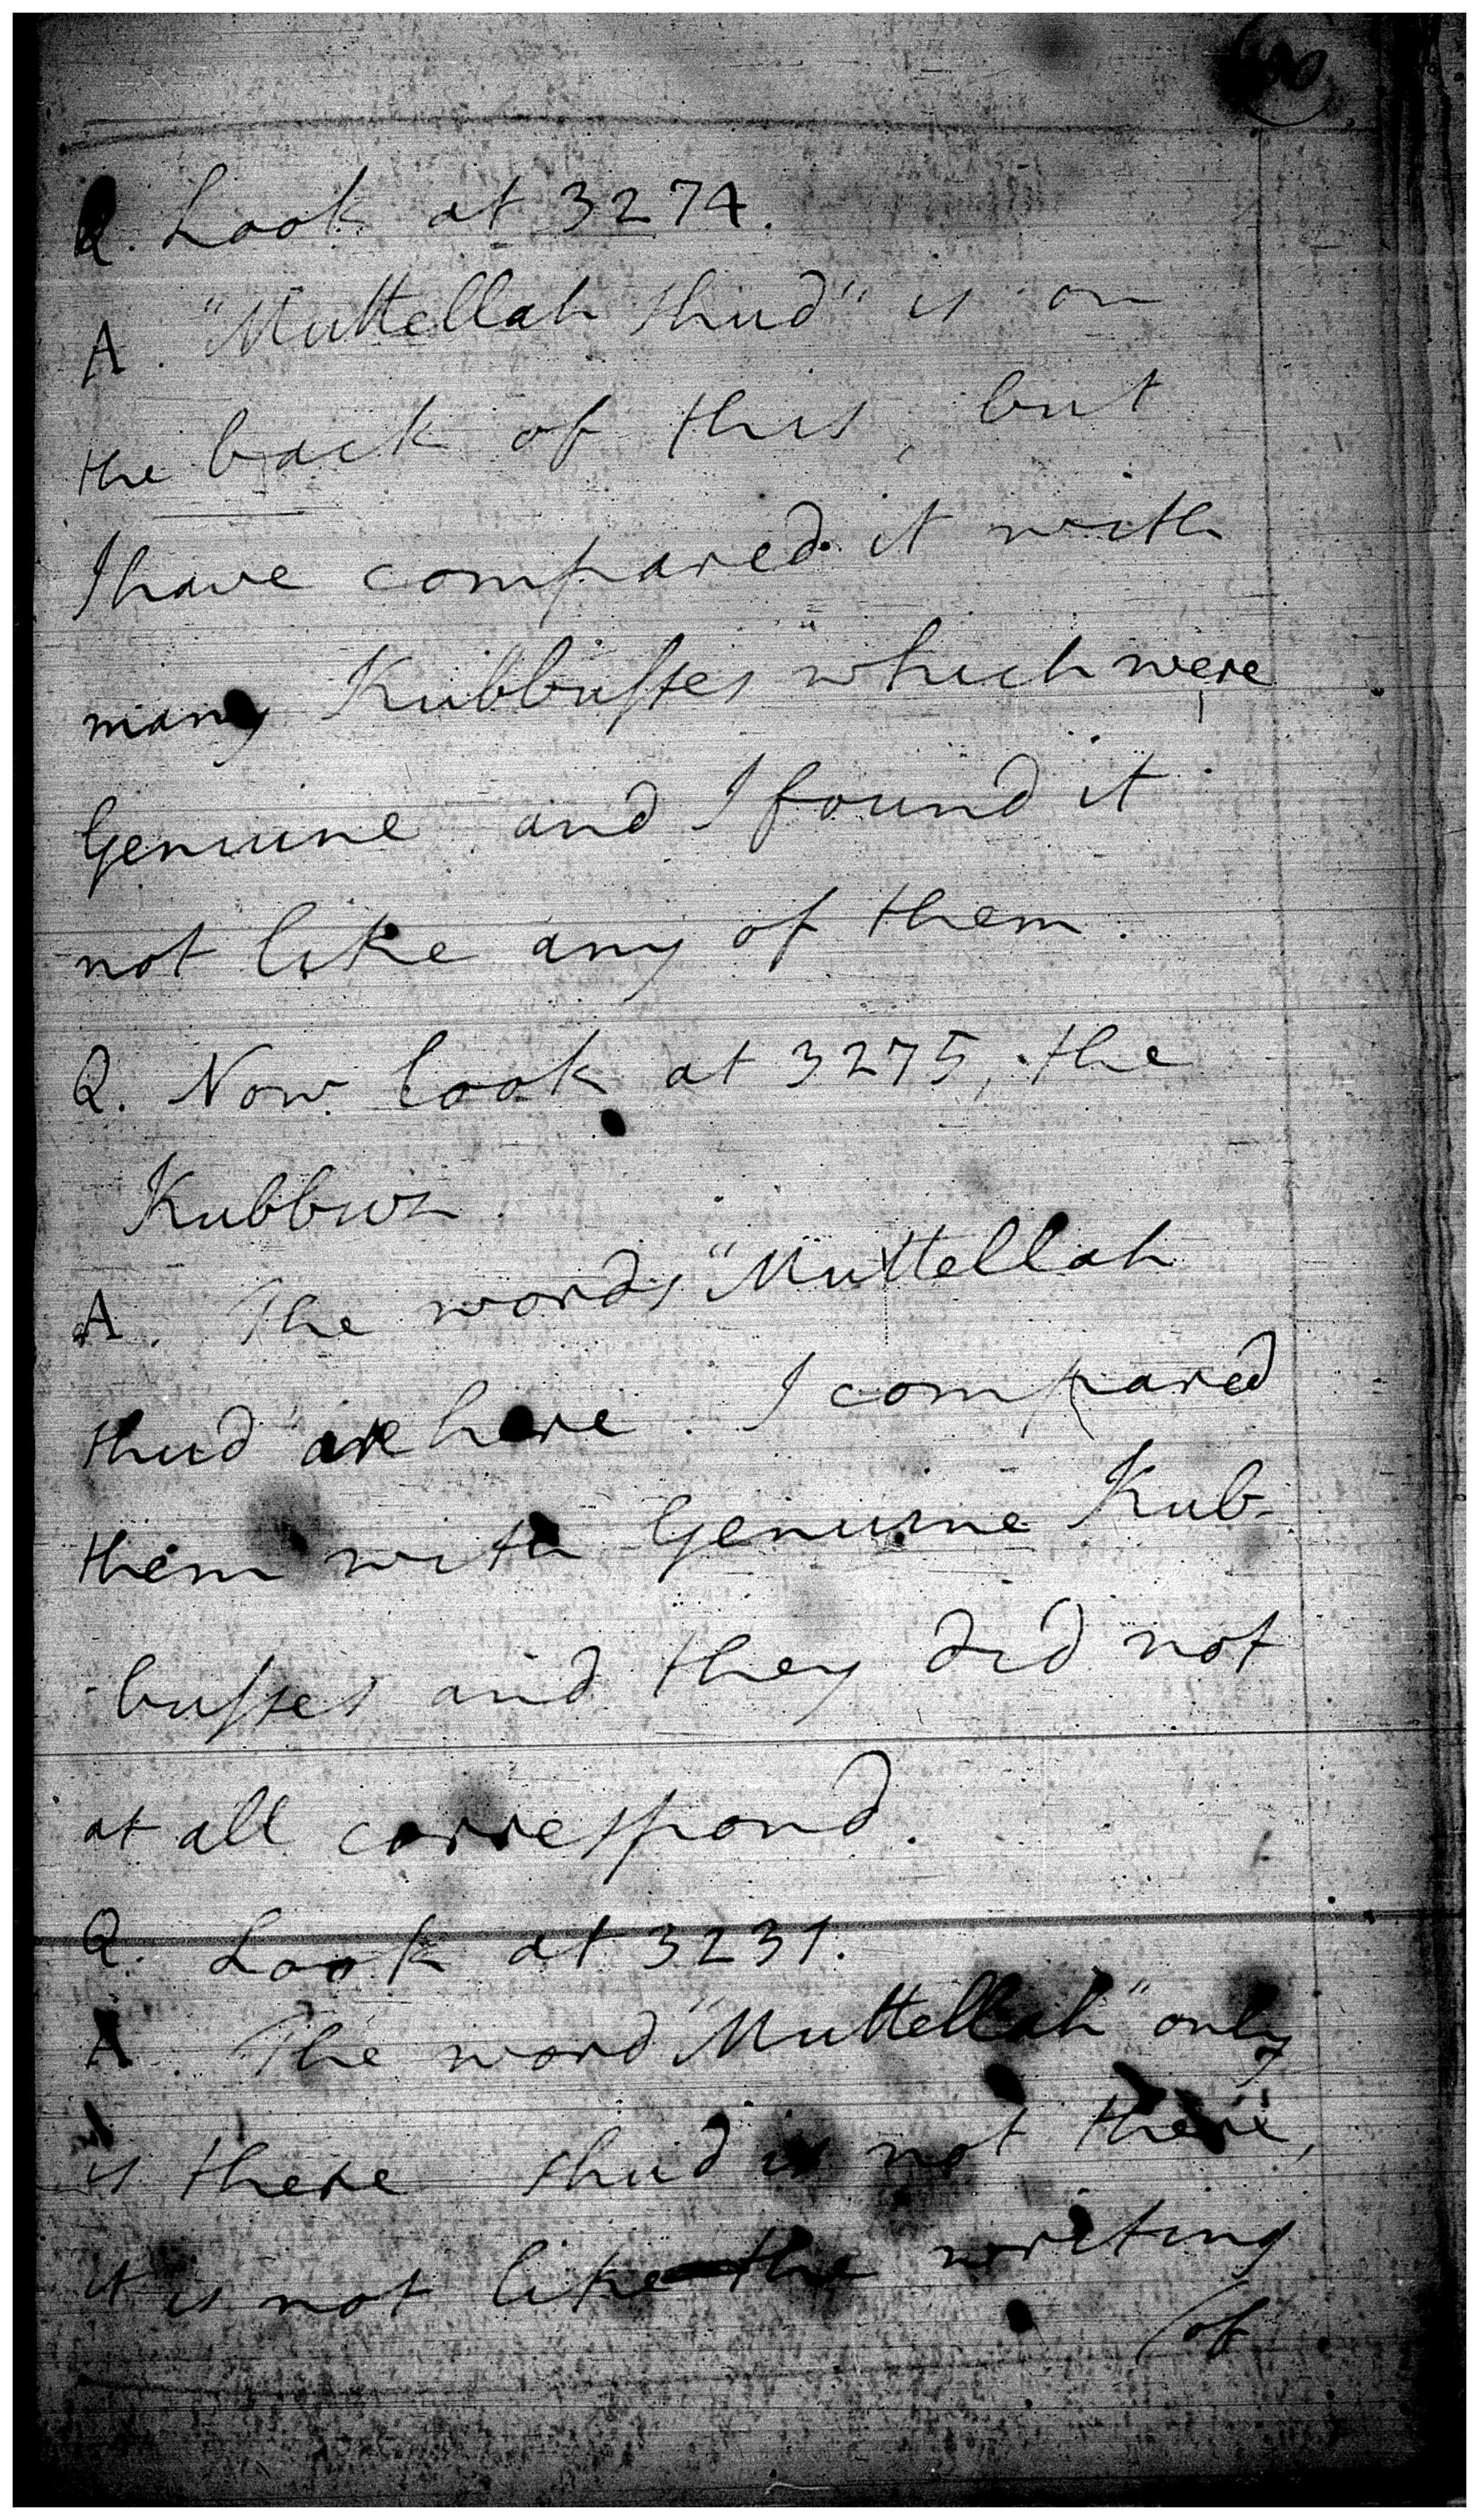 Q. Look at 3274.
A. "Muttellah Shud" is on
the back of this, but
I have compared it with
many Kubbusses which were
Genuine and I found it
not like any of them.
Q. Now look at 3275, the
Kubbuz.
A. The words "Muttellah
Shud" are here. I compared
them with Genuine Kub-
-busses and they did not
at all correspond.
Q. Look at 3231.
A. The word "Muttellah" only
is there Shud is not there,
it is not like the writing
of